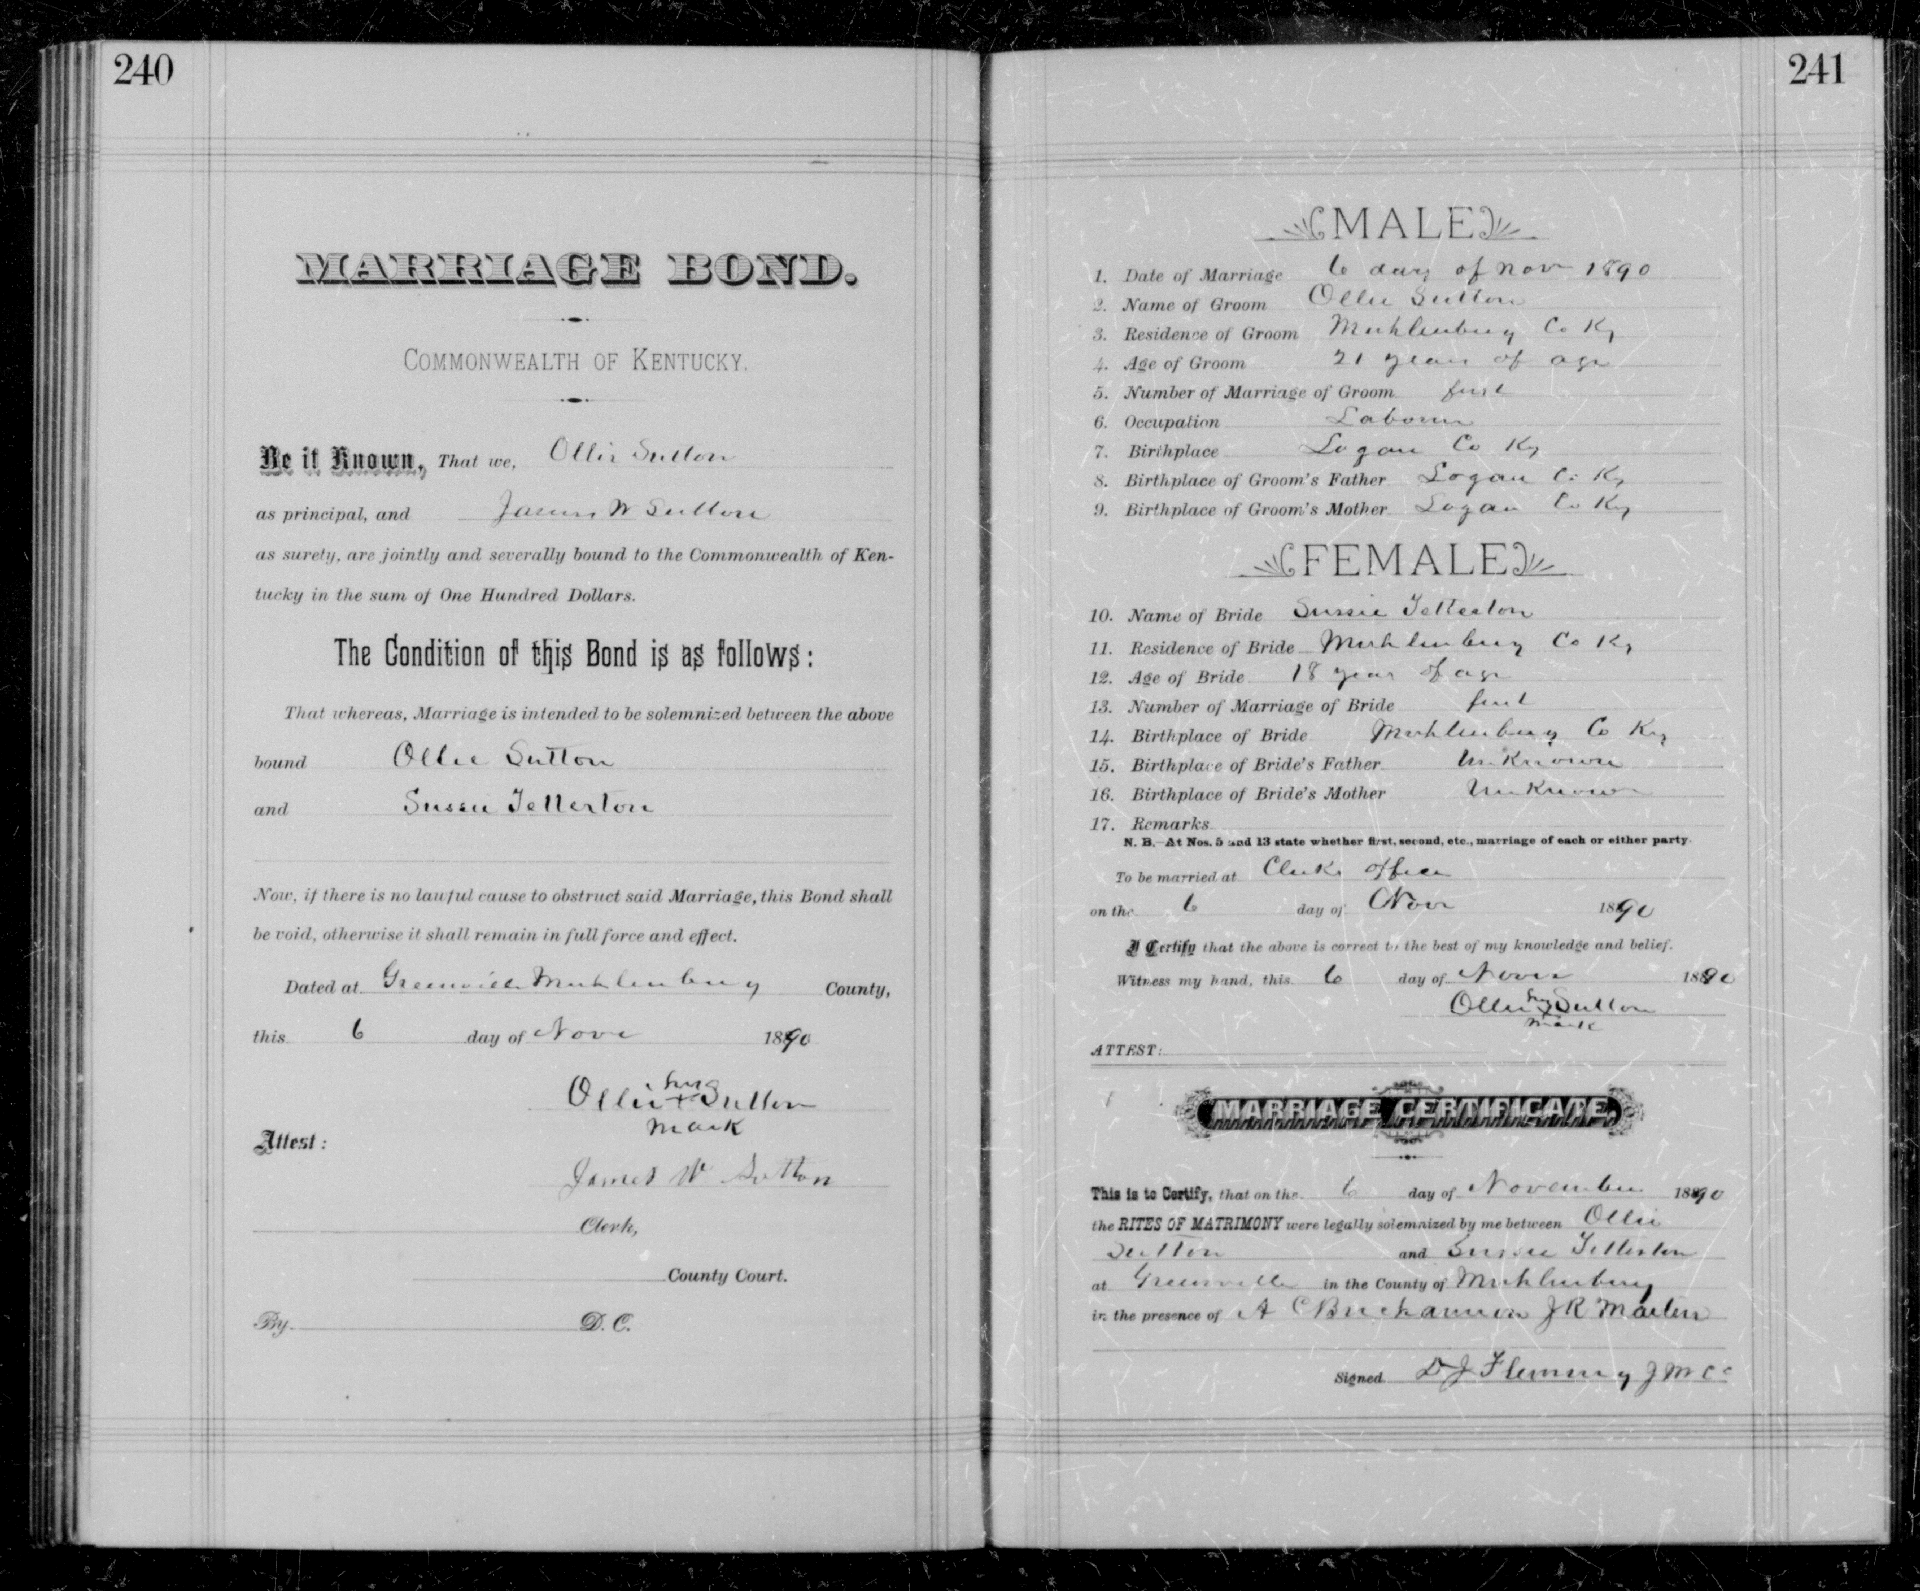 240
MARRIAGE BOND.
COMMONWEALTH OF KENTUCKY.
Be it Known, That we, Ollie Sutton
as principal, and James W Sutton
as surety, are jointly and severally bound to the Commonwealth of Ken-
tucky in the sum of One Hundred Dollars.
The Condition of this Bond is as follows:
That whereas, Marriage is intended to be solemnized between the above
bound Ollie Sutton
and Sussie Tetterton
Now, if there is no lawful cause to obstruct said Marriage, this Bond shall
be void, otherwise it shall remain in full force and effect.
Dated at Greenville Muhlenburg County,
this 6 day of Novr 1890
Ollie his x Sutton
mark
Attest:
James W Sutton
Clerk,
County Court.
By D. C.
241
MALE
1. Date of Marriage 6 day of Nov 1890
2. Name of Groom Ollie Sutton
3. Residence of Groom Muhlenburg Co Ky
4. Age of Groom 21 years of age
5. Number of Marriage of Groom first
6. Occupation Laborer
7. Birthplace Logan Co Ky
8. Birthplace of Groom's Father Logan Co Ky
9. Birthplace of Groom's Mother Logan Co Ky
FEMALE
10. Name of Bride Sussie Tetterton
11. Residence of Bride Muhlenburg Co Ky
12. Age of Bride 18 year of age
13. Number of Marriage of Bride first
14. Birthplace of Bride Muhlenburg Co Ky
15. Birthplace of Bride's Father UnKnown
16. Birthplace of Bride's Mother UnKnown
17. Remarks
N. B.—At Nos. 5 and 13 state whether first, second, etc., marriage of each or either party.
To be married at Clerks office
on the 6 day of Novr 1890
I Certify that the above is correct to the best of my knowledge and belief.
Witness my hand, this 6 day of Novr 1890
Ollie his x Sutton
mark
ATTEST:
MARRIAGE CERTIFICATE.
This is to Certify, that on the 6 day of November 1890
the RITES OF MATRIMONY were legally solemnized by me between Ollie
Sutton and Sussie Tetterton
at Greenville in the County of Muhlenburg
in the presence of A C Buchannon J R Martin
Signed D J Fleming J M C C